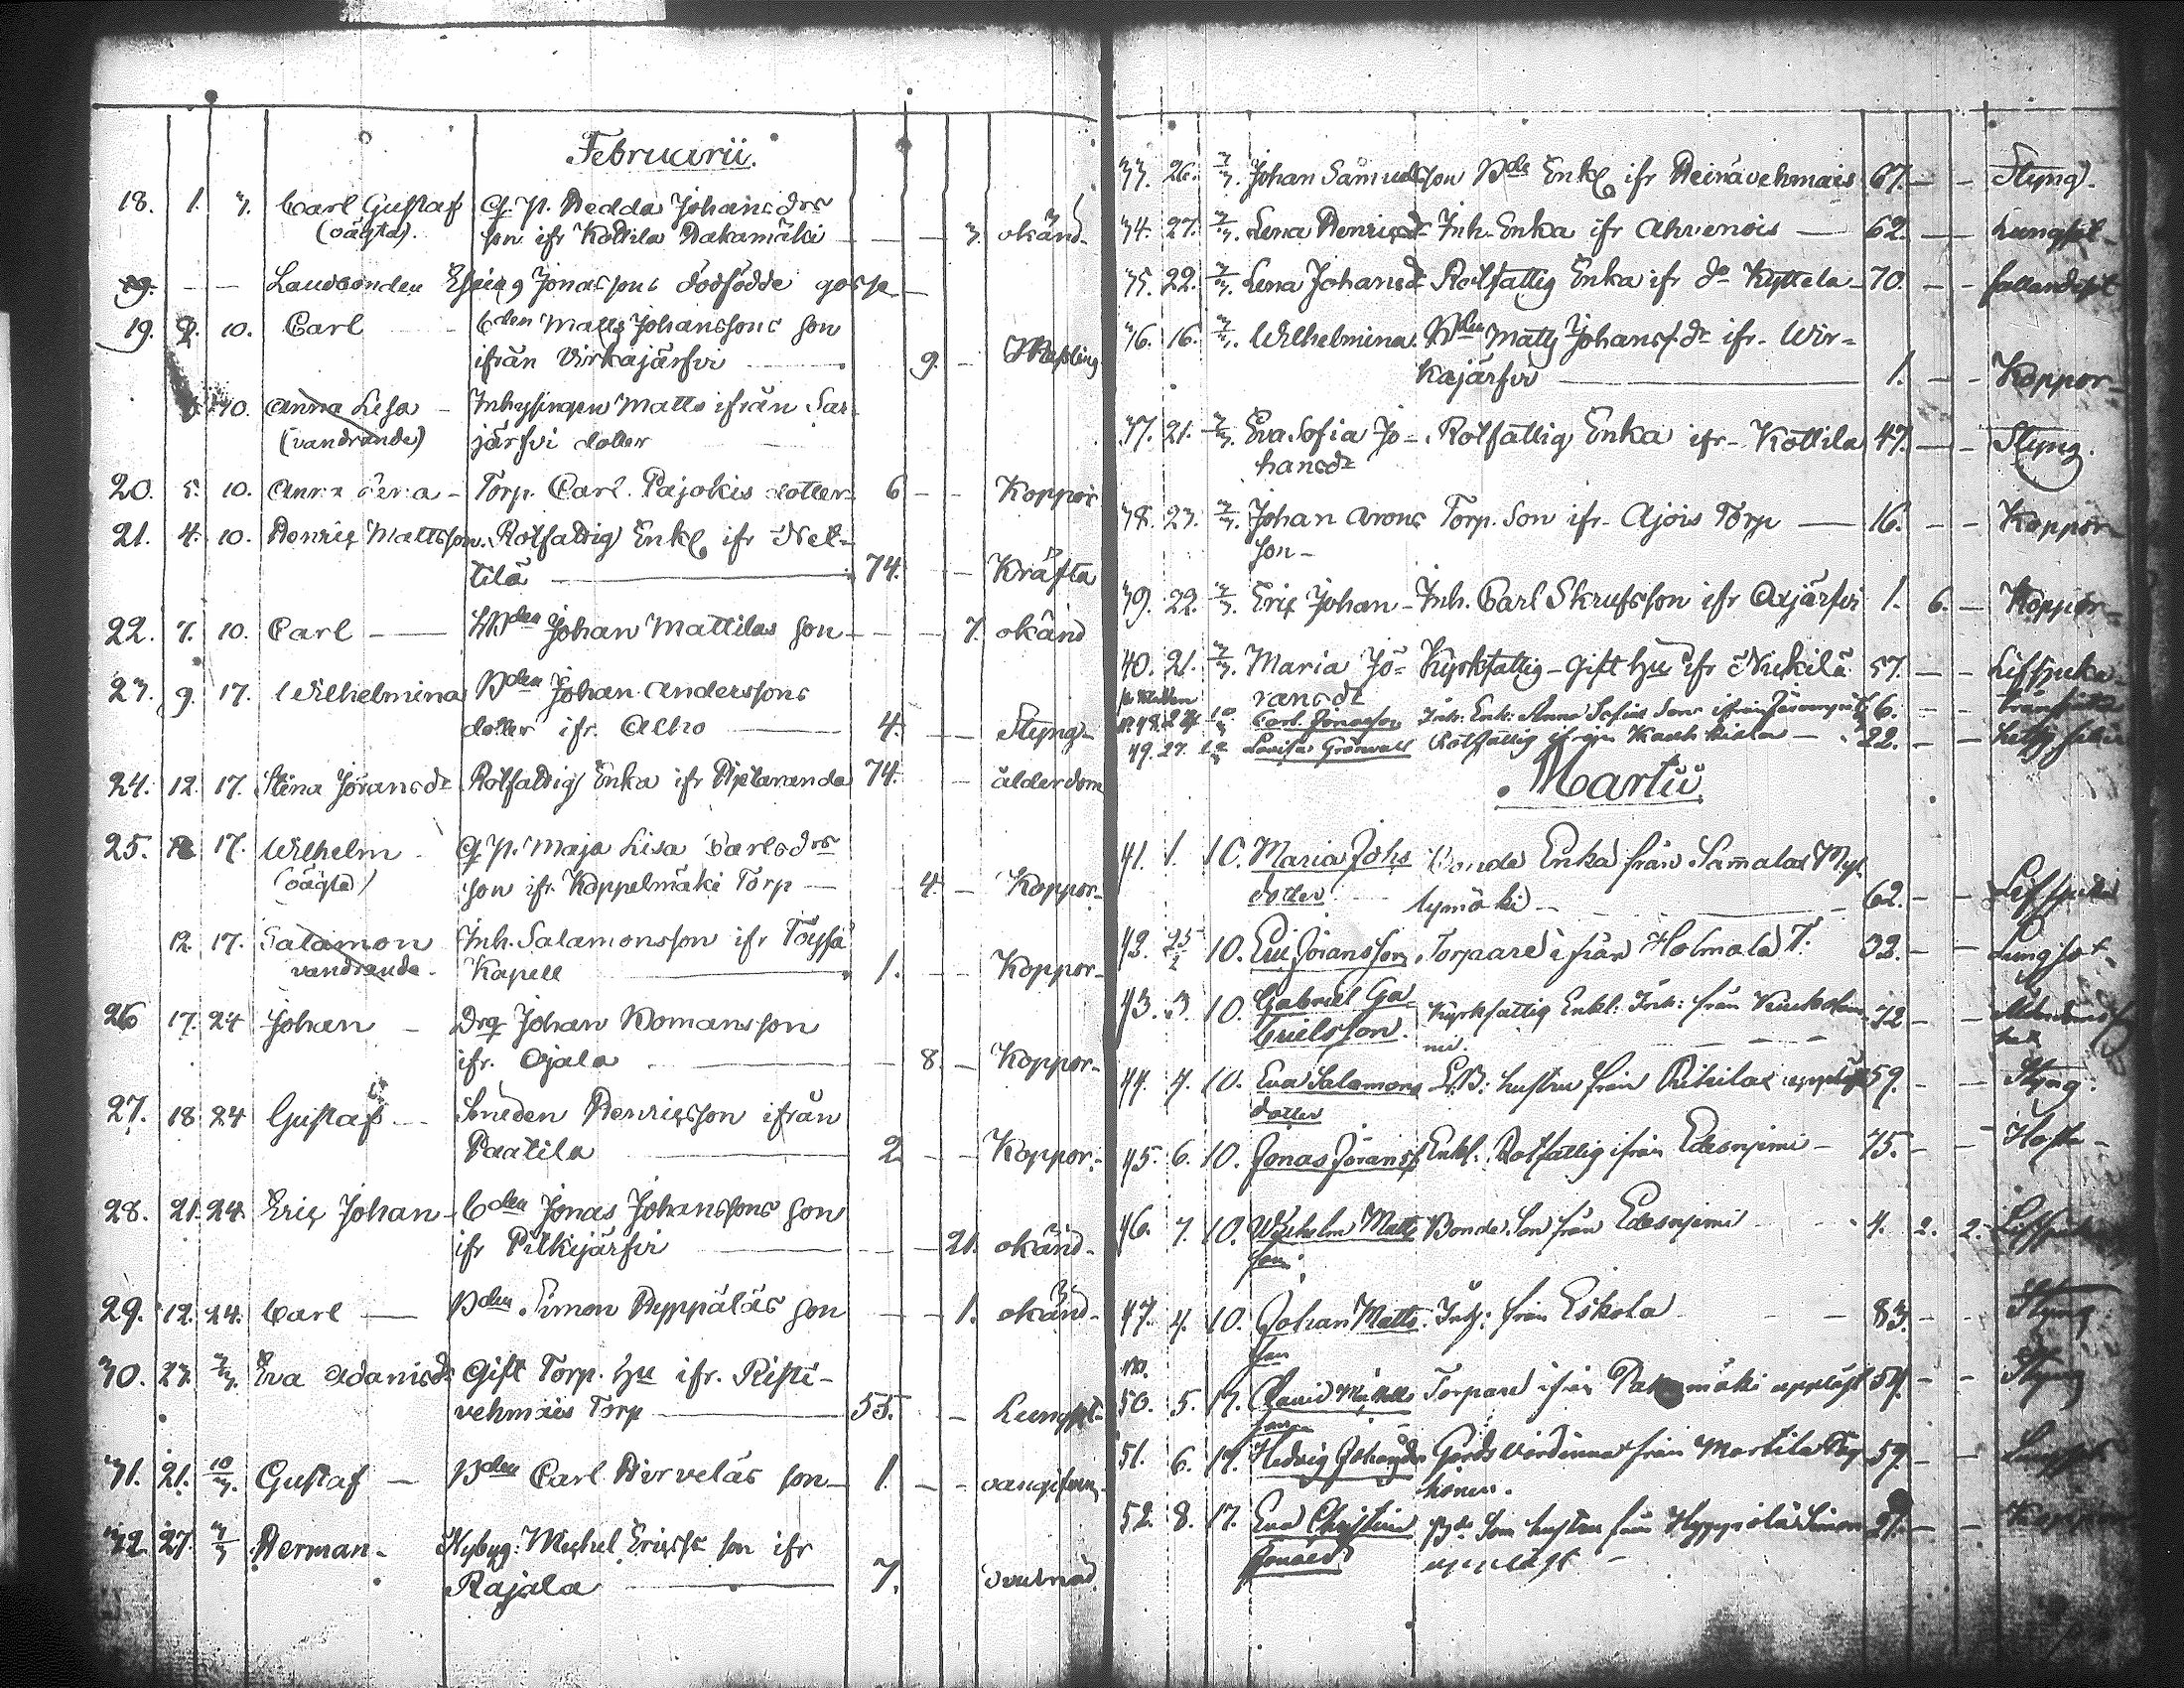 Februarii.
18. 1. 3. Carl Gustaf Q. P. Hedda Johansdrs
(oägta). son ifr Kottila Hakamäki — — 3. okänd.
19. — — Landbonden Johansons dödfödde gosse —
19. 2. 10. Carl — Bden Matts Johanssons son
ifrån Virkajärfvi — 9. — Messling
10. Anna Lisa — Inhysingen Matts ifrån Sar-
(vandrande) järfvi dotter
20. 5. 10. Anna Lena — Torp. Carl Pajokis dotter 6 — — Koppor
21. 4. 10. Henric Mattsson. Rotfattig Enkl. ifr Nel-
tilä — 74. — Kräfta
22. 7. 10. Carl — LBden Johan Mattilas son — — — 7. okänd
23. 9. 17. Wilhelmina Bden Johan Anderssons
dotter ifr. Alho — 4. — Styng-
24. 12. 17. Stina Jöransdr Rotfattig Enka ifr 74. — ålderdom
25. 17. Wilhelm Q. P. Maja Lisa Carlsdrs
(oägta) son ifr. Koppelmäki Torp — 4. — Koppor-
12. 17. Salamon Inh. Salamonsson ifr Töysä
vandrande. Kapell — 1. — Koppor-
26 17. 24 Johan — Drg Johan Homansson
ifr. Ojala — 8. — Koppor-
27. 18 24 Gustaf — Smeden Henricsson ifrån
Paatila — 2. — — Koppor-
28. 21. 24. Eric Johan — Bden Jonas Johanssons son
ifr Pitkijärfvi — — 21. okänd-
29. 12. 24. Carl — Bden Simon Heppäläs son — — 1. okänd-
30. 23. 3/3. Eva Adamsdr Gift Torp. Hu ifr. Risti-
vehmais Torp — 55. — Lungsot-
31. 21. 10/3. Gustaf — Bden Carl Hirveläs son — 1. — —
32. 27. 3/3 Herman — Nybyg. Michel Ericss son ifr
Rajala — 7.
33. 26. 3/3. Johan Samuelsson Bde Enkl. ifr Heinävehmais 67. — — Styng.
34. 27. 3/3. Lena Henricsdr Inh. Enka ifr Ahvenois — 62. — Lungsot-
35. 22. 3/3. Lena Johansdr Rotfattig Enka ifr do Kyttela — 70. — — fallandesot
36. 16. 3/3. Wilhelmina Bden Matts Johanss. dr ifr. Wir-
kajärfvi — 1. — — Koppor-
37. 21. 3/3. Eva Sofia Jo- Rotfattig Enka ifr- Kottila 47. — — Styng.
hansdr
38. 23. 3/3. Johan Arons Torp. Son ifr- Ajois Torp — 16. — — Koppor-
son-
39. 22. 3/3. Eric Johan — Inh. Carl Skrufs son ifr Oxjärfvi 1. 6. — Koppor-
40. 21. 3/3. Maria Jö- Kyrkfattig — Gift Hu ifr Nickilä 57. — — Lefsjuka-
ransdr
48. 24. 10 Carl Jonasson Inh. Enk. Anna Sofias Son ifrån 6. — —
49. 27. Lovisa Grönvall Rotfattig ifrån — 22. — —
Martii
41. 1. 10. Maria Johs Bonde Enka från Samalas Myl-
dotter lymäki — 62. — — Lefsjuka
42. 25/2 10. Eric Jöransson Torpare ifrån Holmala T. 32. — — Lungsot
43. 3. 10. Gabriel Ga- Kyrkfattig Enkl. Inh: från 72 — —
brielsson.
44. 4. 10. Eva Salamons LB: hustru från 59. — — Styng.
dotter
45. 6. 10. Jonas Jöranss Enkl. Rotfattig ifrån Edesnjemi — 75. — — Hosta-
46. 7. 10. Wilhelm Matts Bonde Son från Edesnjemi 4. 2. 2. Lefsjuka
son
47. 4. 10. Johan Matts Inh: från Eskola — 83. — — Styng
son
50. 5. 17. David Torpare ifrån Hakamäki uppläst 54. — — Styng
51. 6. 17. Hedvig Johansdr Gårds Värdinna från Martila 59. — — Lungsot
52. 8. 17. Eva Christina Bde Son hustru från Hyypiölä Simon 27. — — Koppor
Jonasdr uppläst —